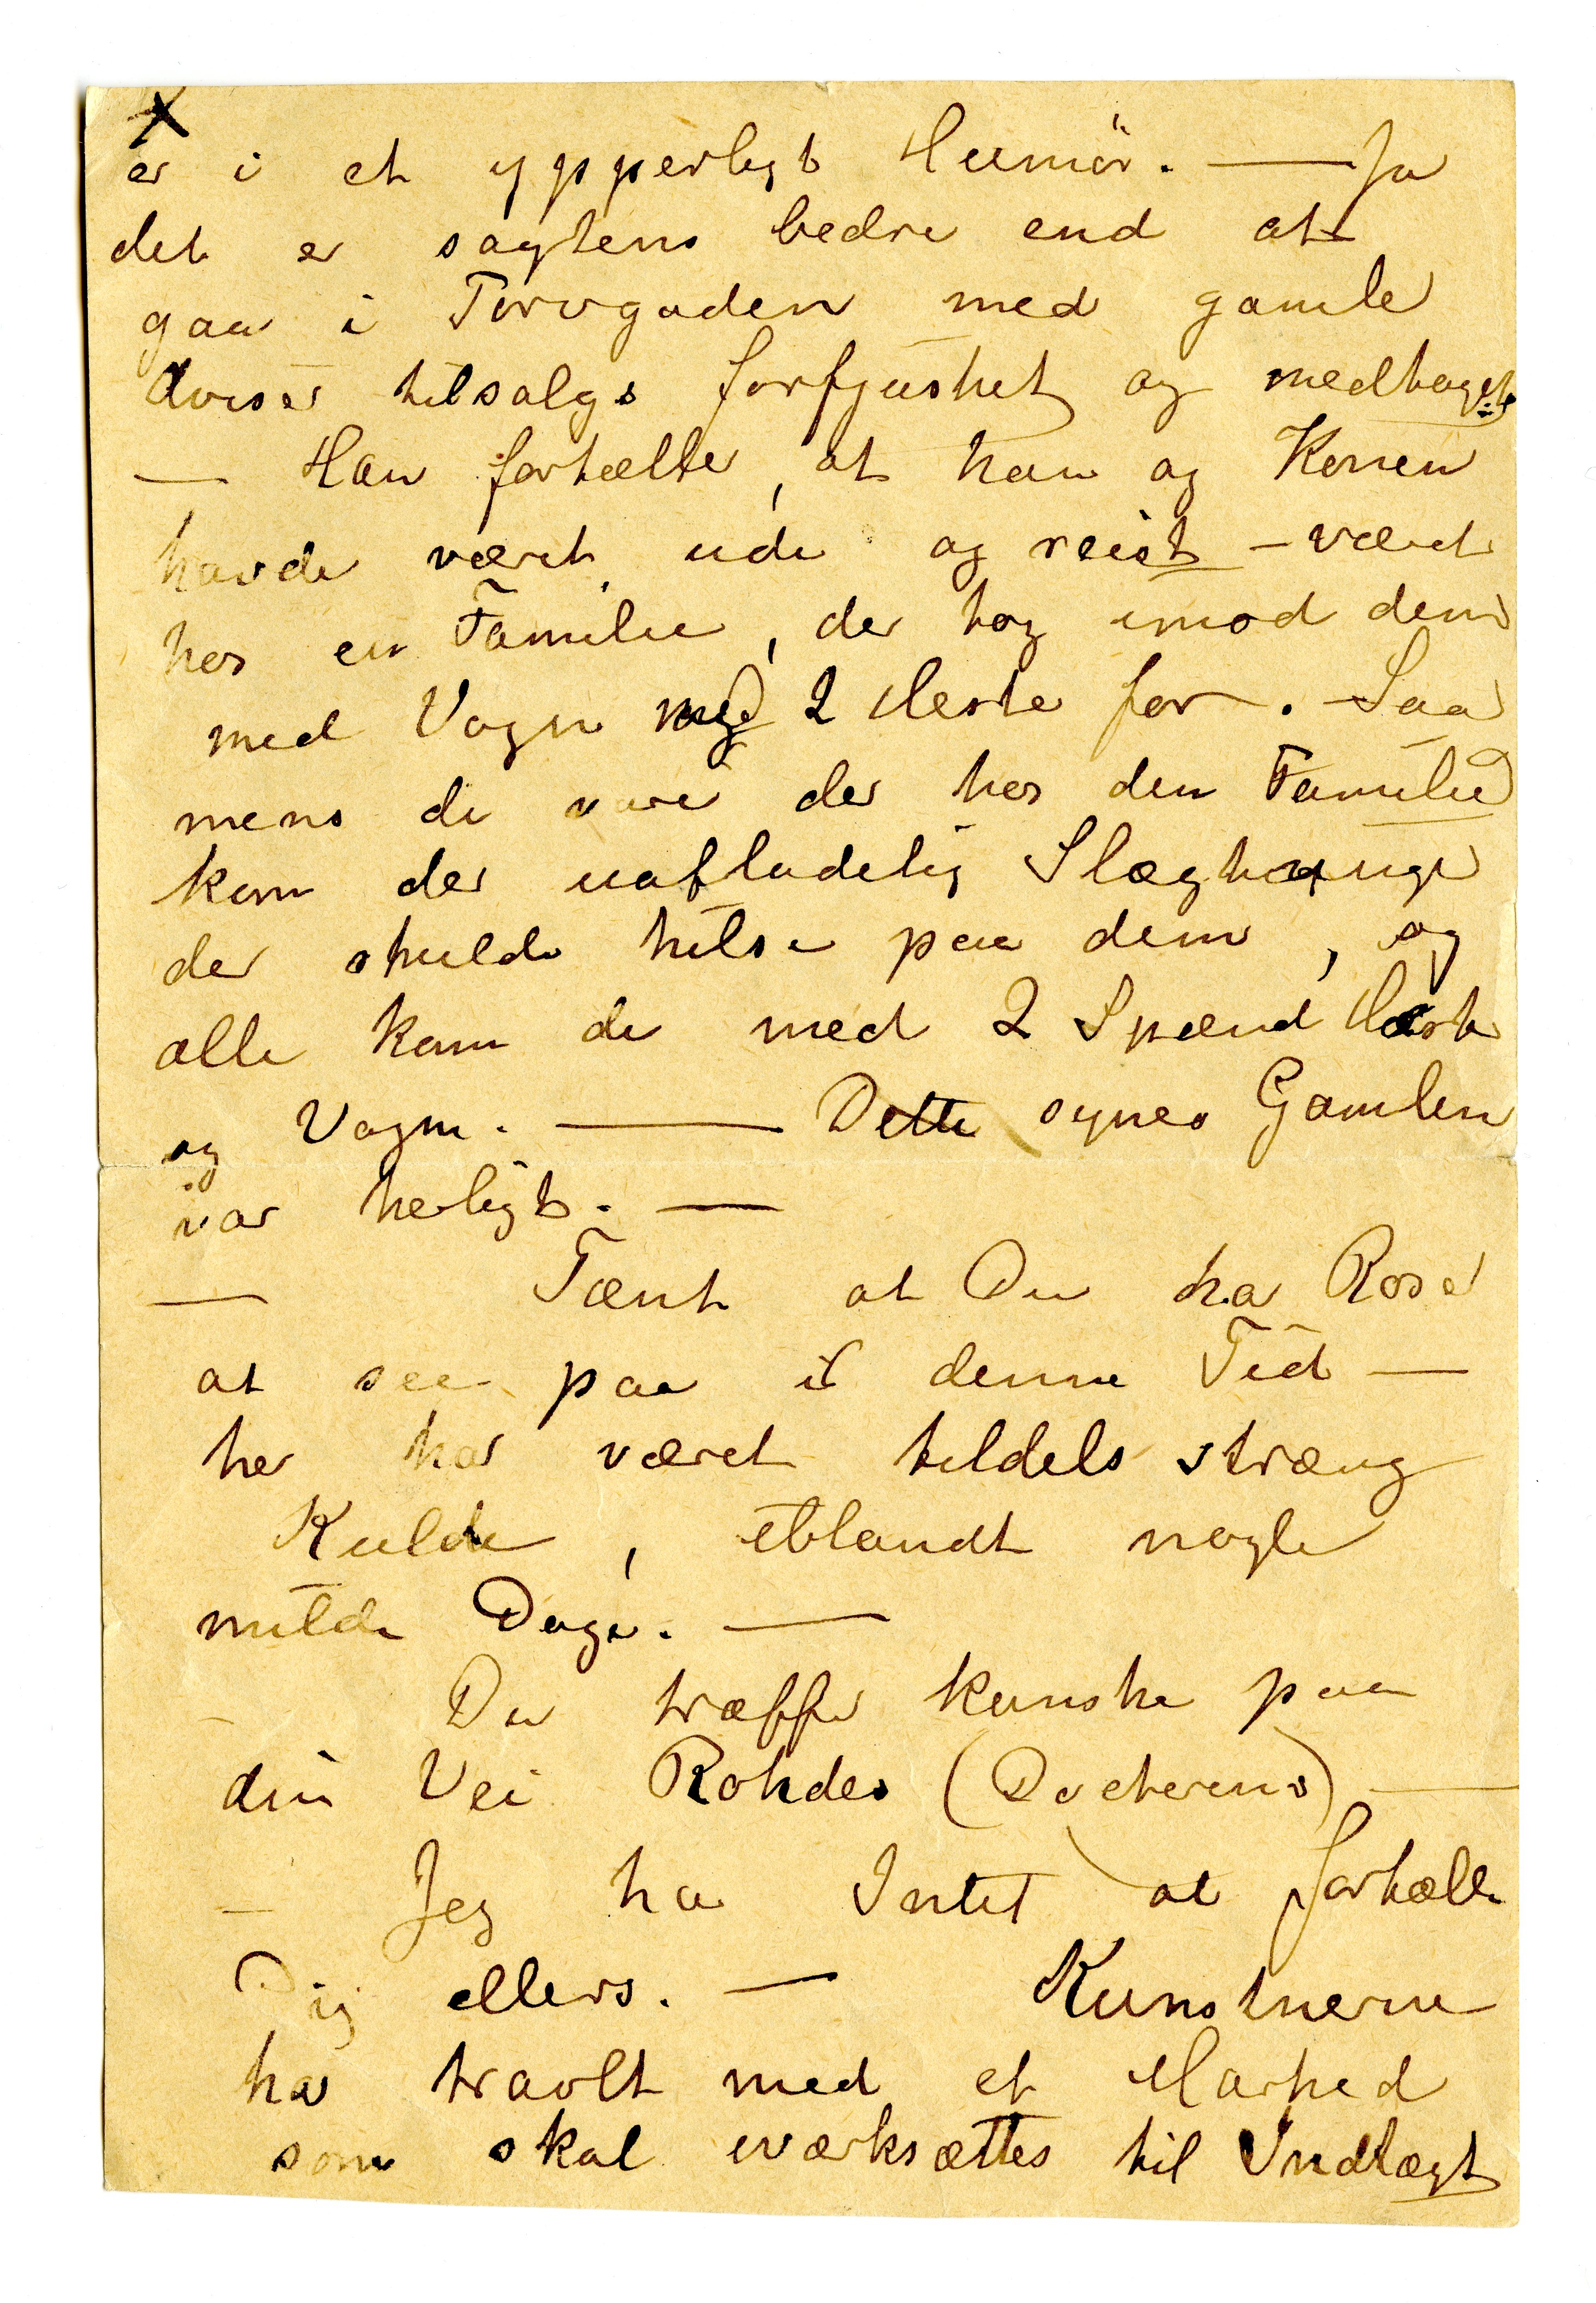 X
er i et ypperligt Humör. — Ja
det er sagtens bedre end at
gaa i Torvgaden med gamle
Aviser tilsalgs forfjusket og medtaget
— Han fortælte, at han og Konen
havde været ude og reist – været
hos en Familie, der tog imod dem
med Vogn med 2 Heste for. – Saa
mens de vare der hos den Familie
kom der uafladelig Slægtninge
der skulde hilse paa dem, og
alle kom de med 2 Spænd Heste
og Vogn. — Dette synes Gamlen
var herligt. —
— Tænk at Du ha Roser
at see paa i denne Tid —
her har været tildels stræng
Kulde, iblandt nogle
milde Dage. —
– Du træffer kanske paa
din Vei Rohdes (Docterens) —
– Jeg ha Intet at fortælle
Dig ellers. — Kunstnerne
har travlt med et Marked
som skal iværksættes til Indtægt